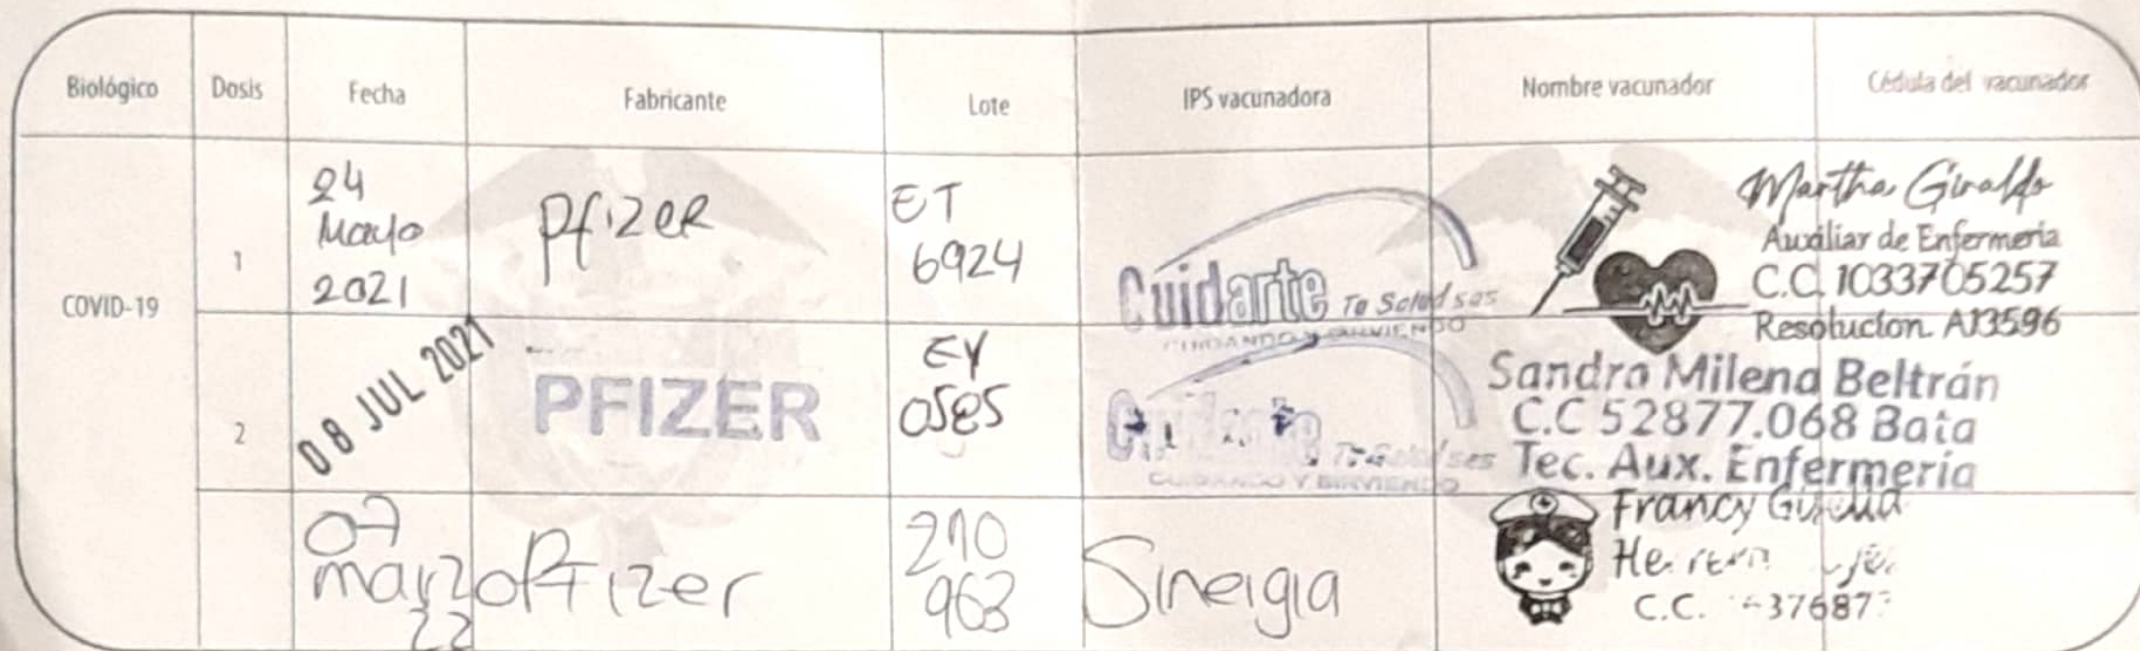 Biológico Dosis Fecha Fabricante Lote IPS vacunadora Nombre vacunador Cédula del vacunador
COVID-19
1
24
Mayo
2021
Pfizer
ET
6924
Cuidarte Tu Salud sas
CUIDANDO Y SIRVIENDO
Martha Giraldo
Auxiliar de Enfermeria
C.C. 1033705257
Resolucion A13596
2
08 JUL 2021
PFIZER
EY
0585
CUIDANDO Y SIRVIENDO
Sandra Milena Beltrán
C.C 52877.068 Bata
Tec. Aux. Enfermería
07
marzo
22
Pfizer
210
963
Sinergia
Francy
C.C.